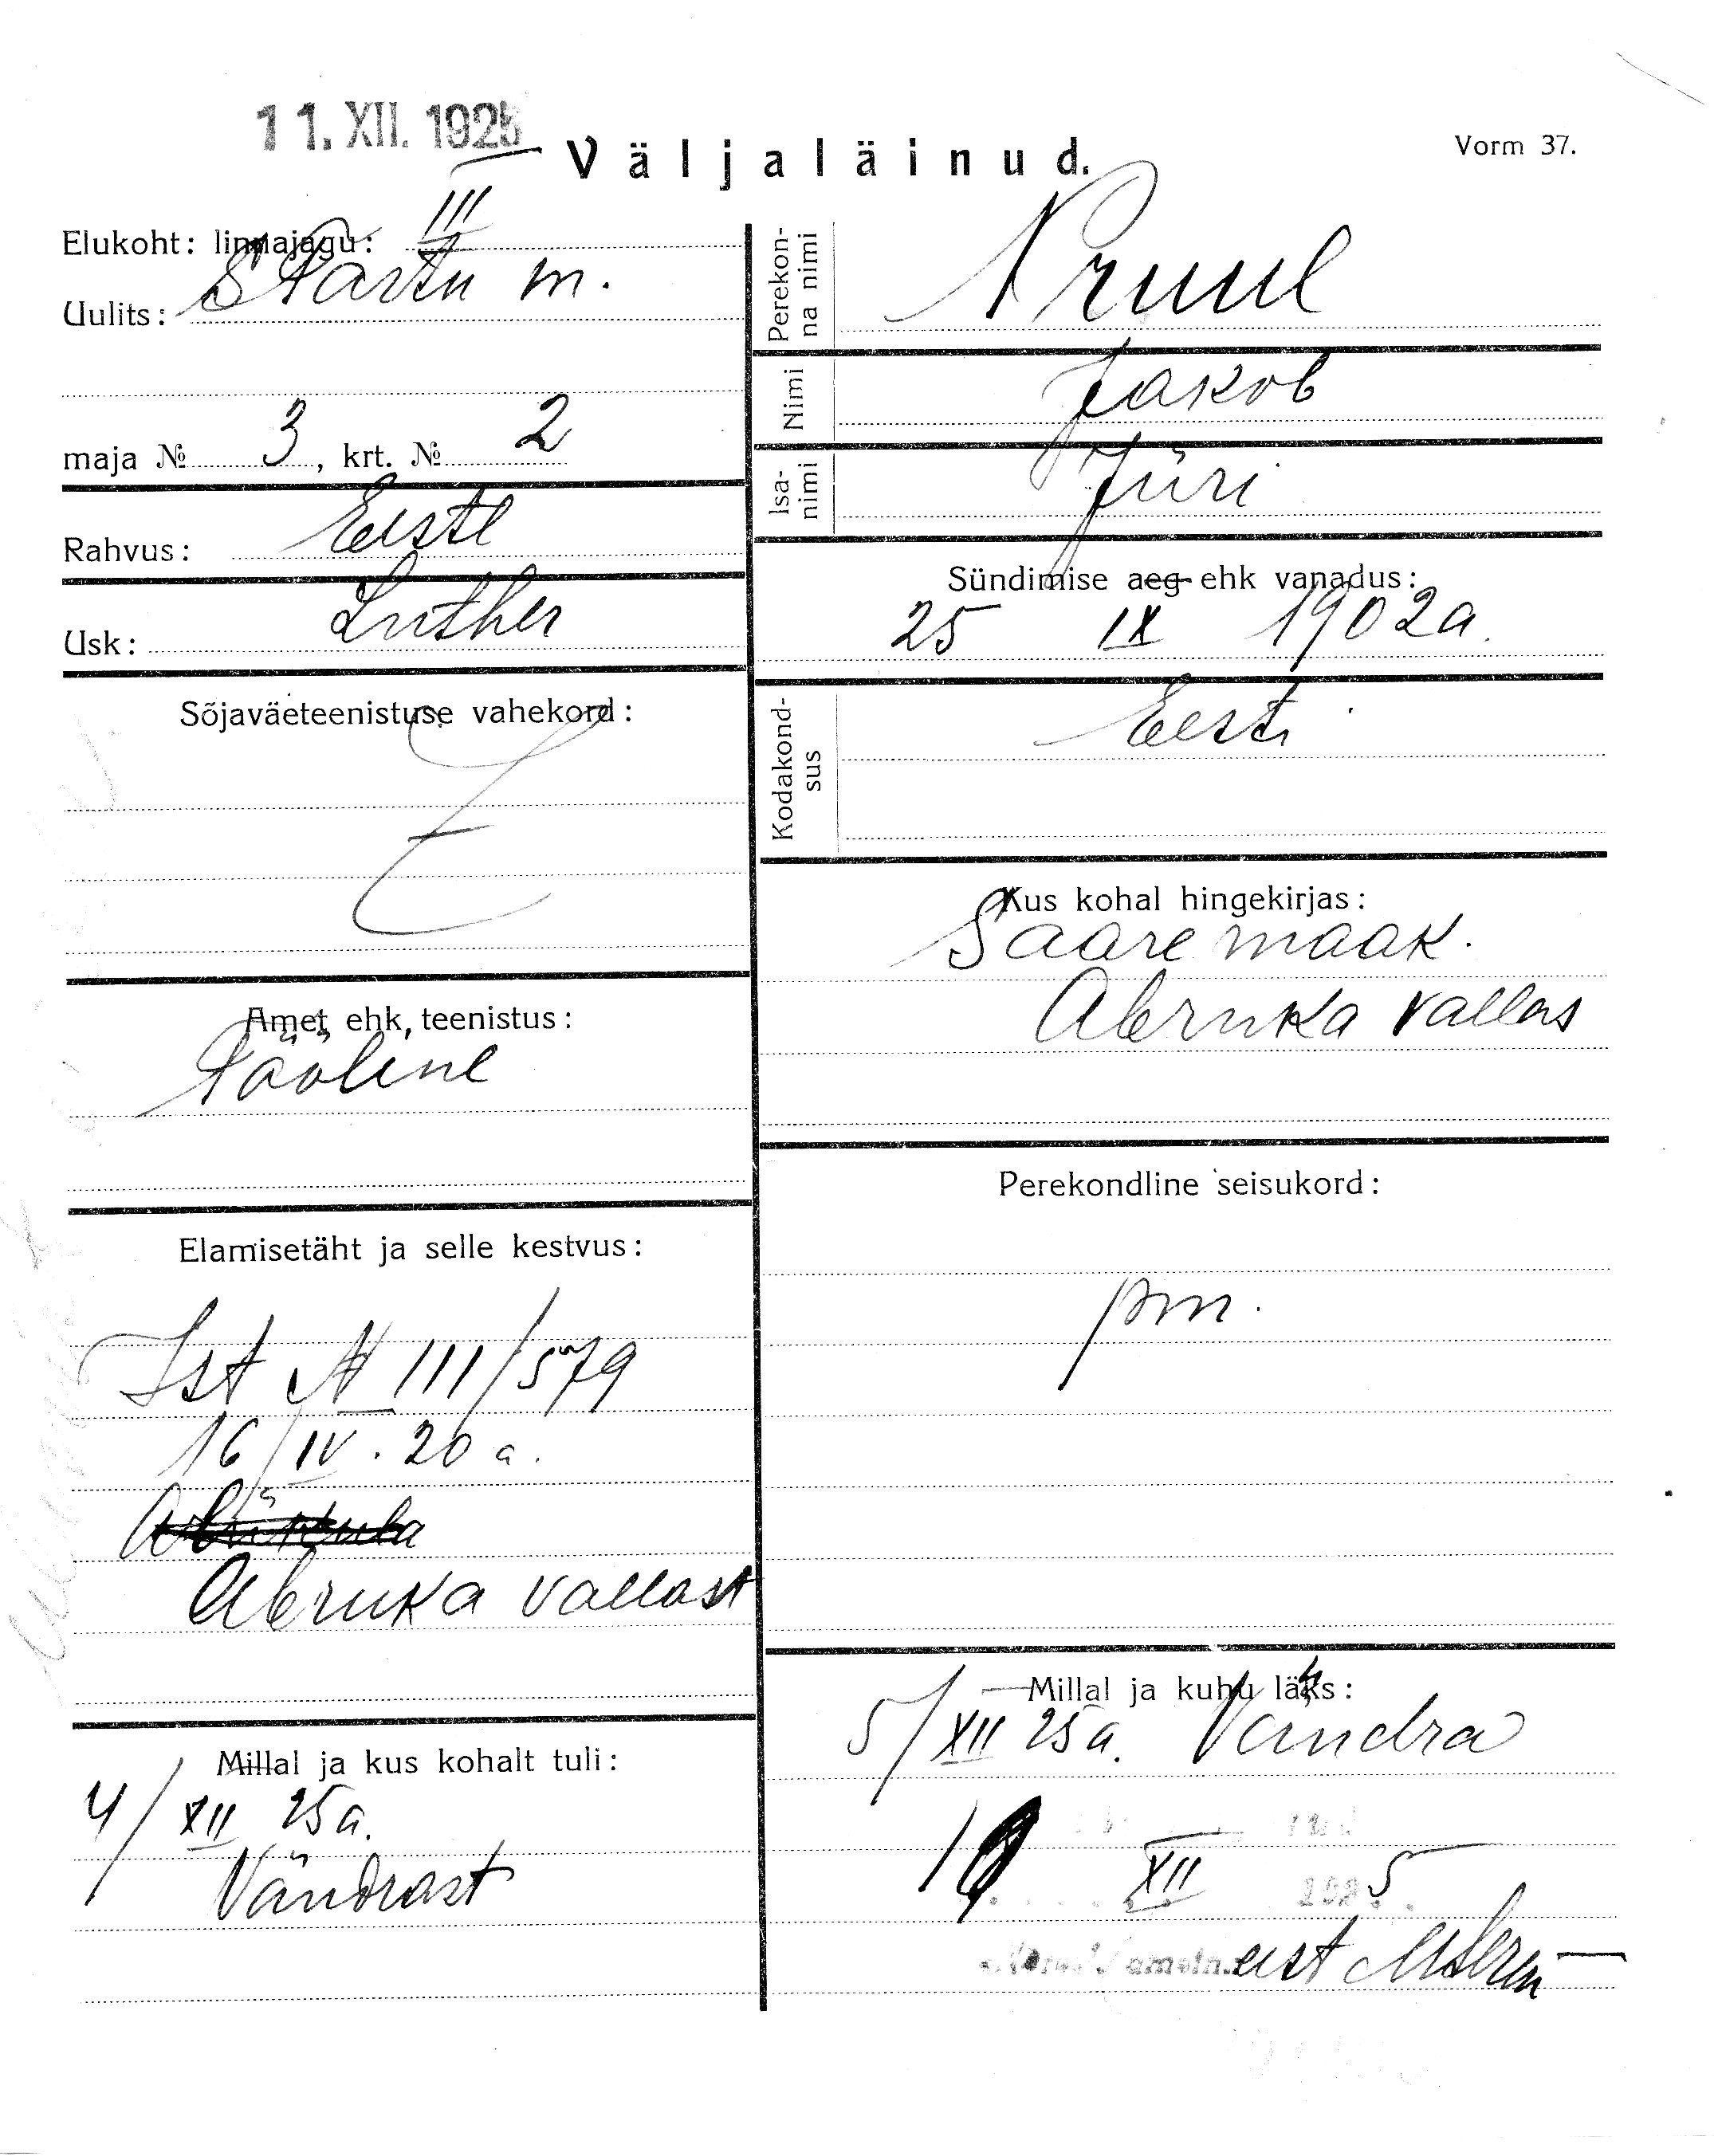 11. XII. 1925
Väljaläinud.
Vorm 37.
Elukoht: linnajagu: III
Uulits: S Tartu m.
maja № 3, krt. № 2
Rahvus: Eestl
Usk: Luther
Sõjaväeteenistuse vahekord:
Amet ehk teenistus:
Tööline
Elamisetäht ja selle kestvus:
Ist № III/579
16/IV. 20 a.
Abruka vallast
Millal ja kus kohalt tuli:
4/XII 25a.
Vändrast
Perekonna nimi
Pruul
Nimi
Jakob
Isanimi
Jüri
Sündimise aeg ehk vanadus:
25 IX 1902a.
Kodakondsus
Eesti
Kus kohal hingekirjas:
Saaremaak.
Abruka vallas
Perekondline seisukord:
pm.
Millal ja kuhu läks:
5/XII 25a. Vändra
XII 5